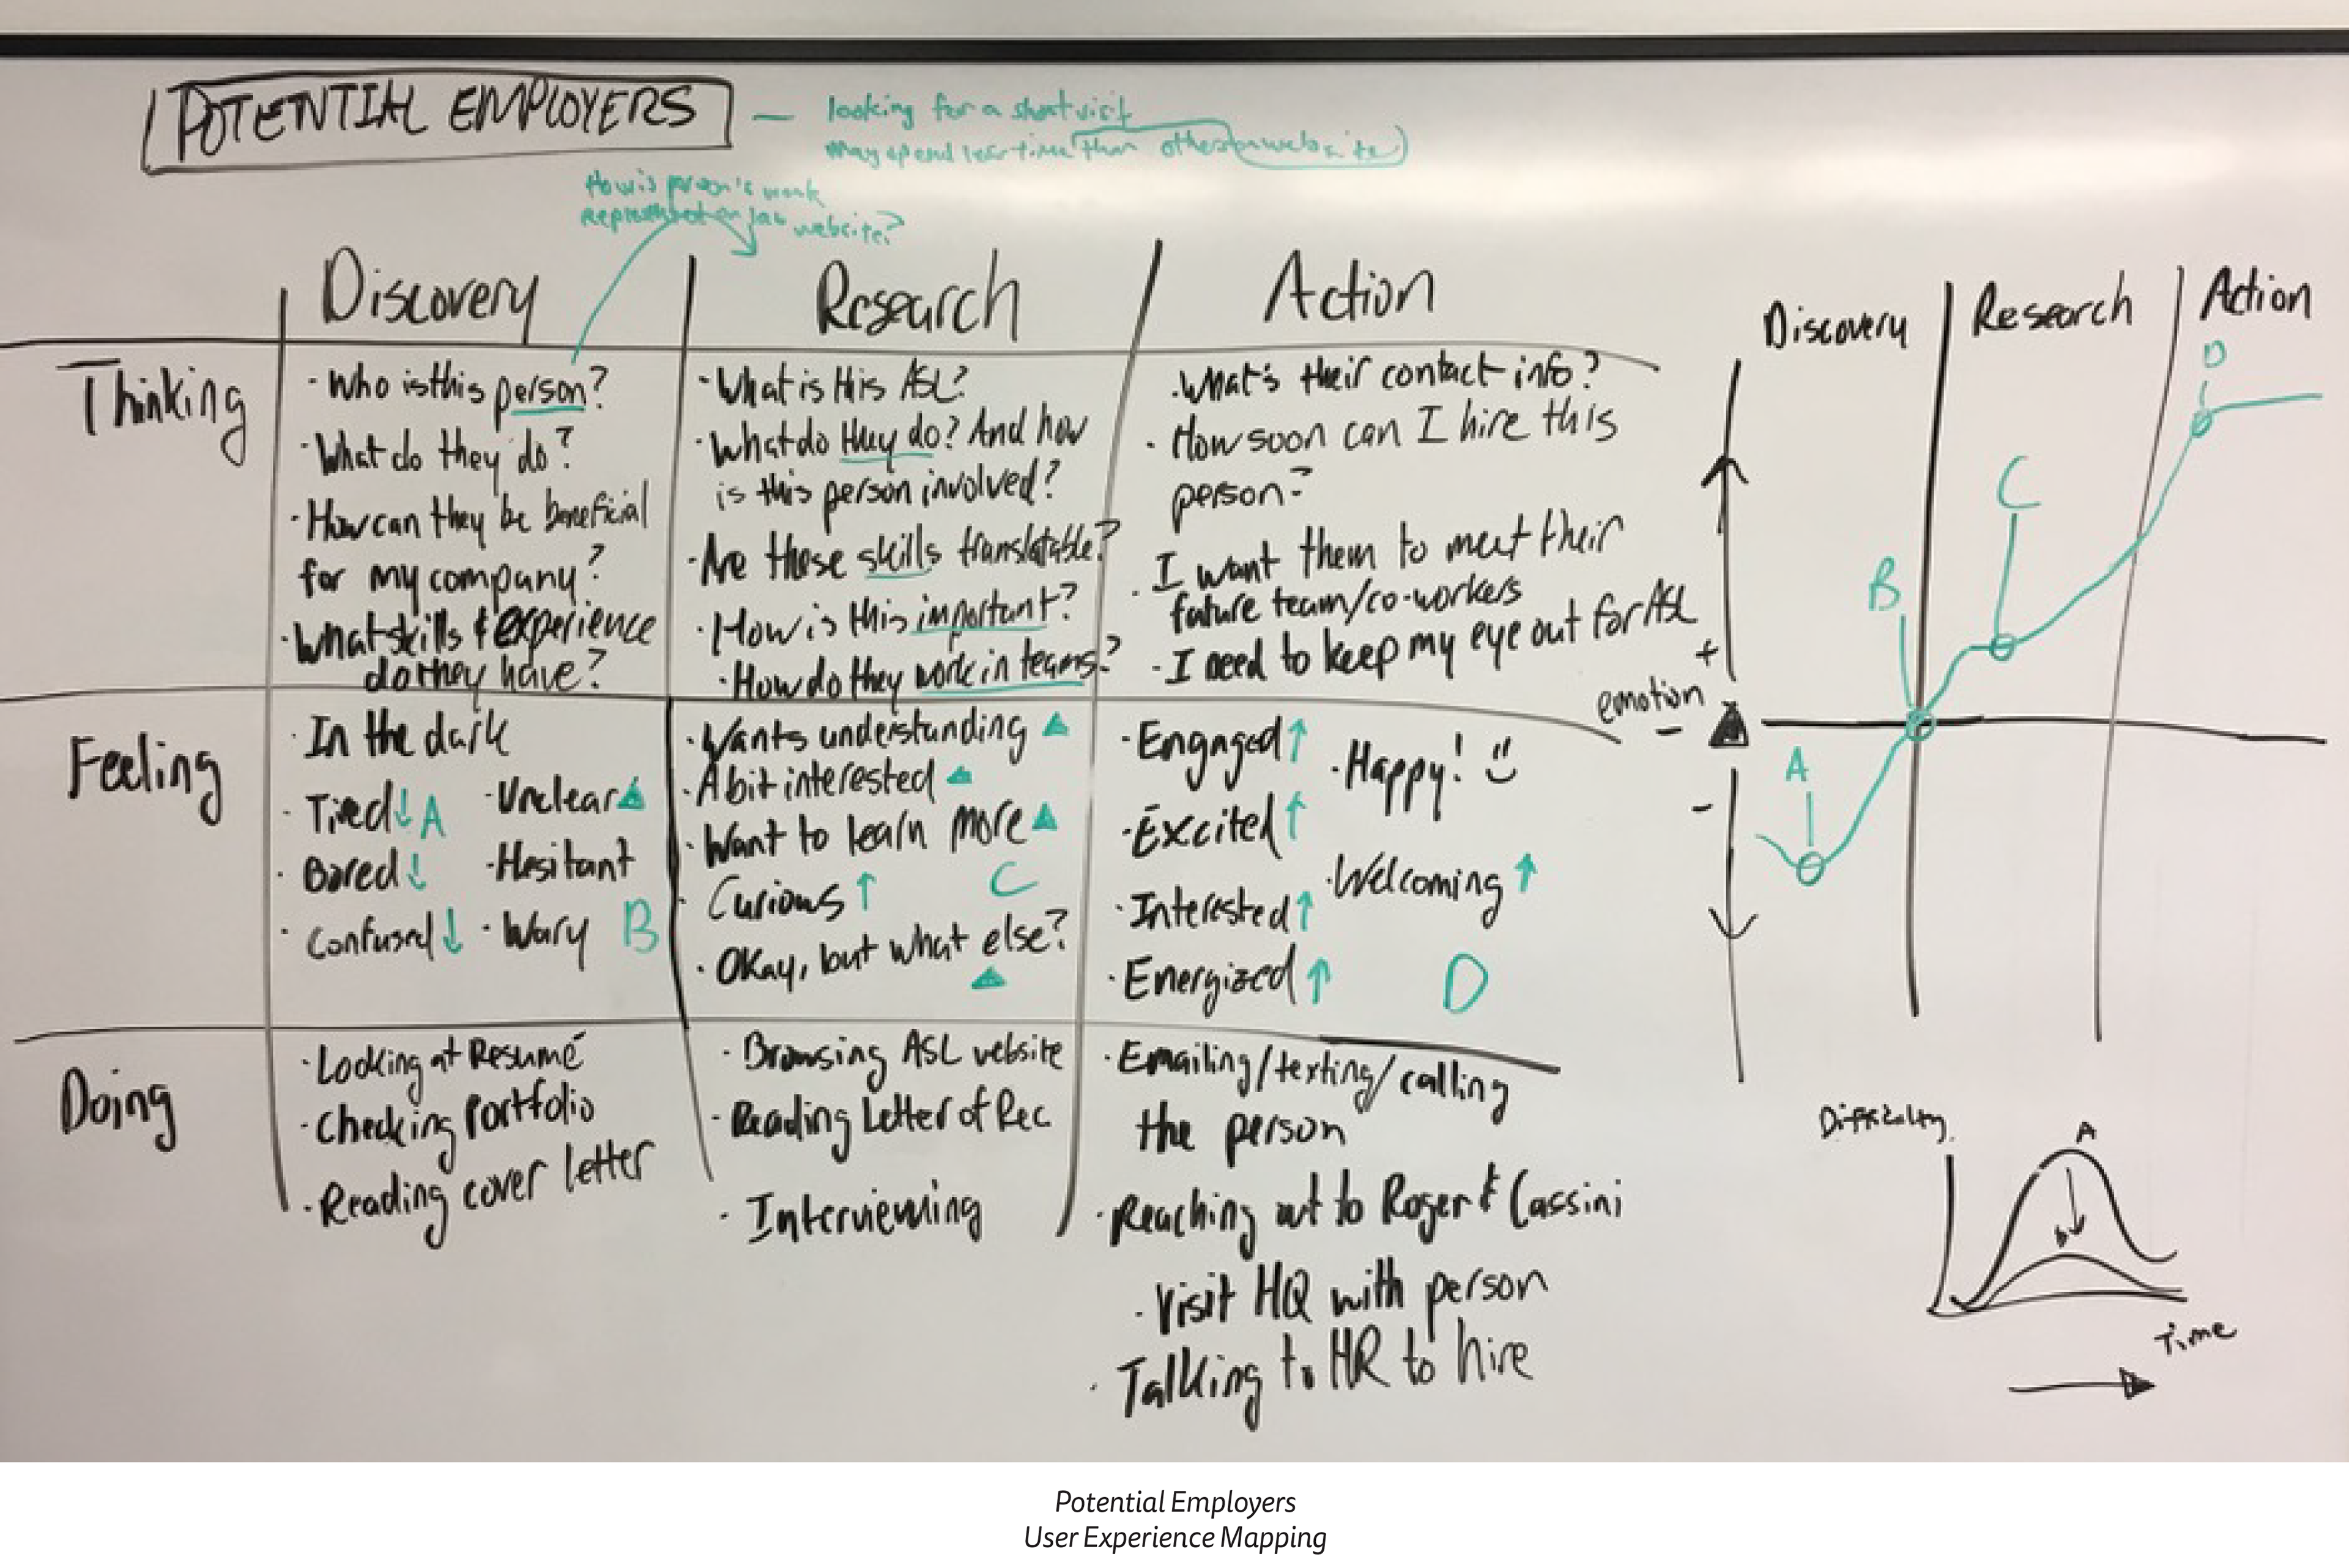 POTENTIAL EMPLOYERS
— looking for a short visit
may spend less time than others on website
How is person's work
represented on lab website?
Discovery
Research
Action
Thinking
· Who is this person?
· What do they do?
· How can they be beneficial
for my company?
· What skills & experience
do they have?
· What is this ASL?
· What do they do? And how
is this person involved?
· Are these skills translatable?
· How is this important?
· How do they work in teams?
· What's their contact info?
· How soon can I hire this
person?
· I want them to meet their
future team/co-workers
· I need to keep my eye out for ASL
Feeling
· In the dark
· Tired ↓ A
· Bored ↓
· Confused ↓
· Unclear
· Hesitant
· Wary B
· Wants understanding
· A bit interested
· Want to learn more
· Curious ↑ C
· Okay, but what else?
· Engaged ↑
· Excited ↑
· Interested ↑
· Energized ↑
· Happy! :)
· Welcoming ↑
D
Doing
· Looking at Resumé
· Checking Portfolio
· Reading cover letter
· Browsing ASL website
· Reading Letter of Rec
· Interviewing
· Emailing/texting/calling
the person
· Reaching out to Roger & Cassini
· Visit HQ with person
· Talking to HR to hire
Discovery
Research
Action
D
C
B
+
emotion
-
A
-
Difficulty
A
Time
Potential Employers
User Experience Mapping